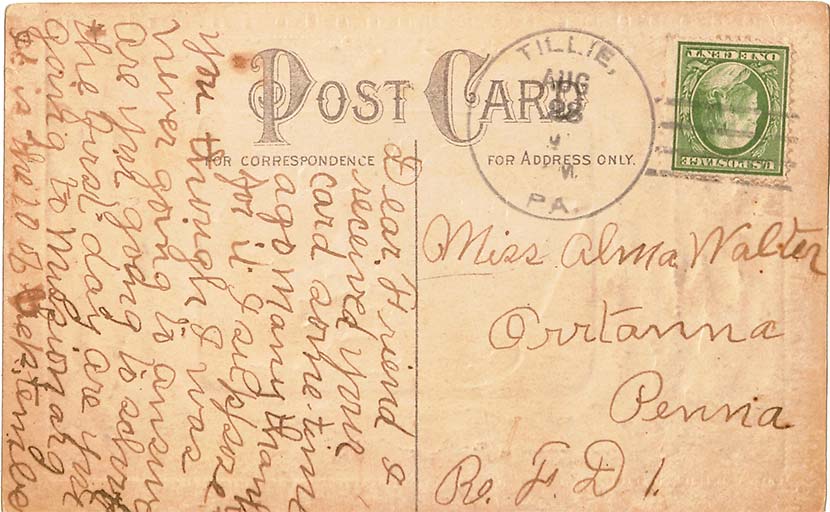 POST CARD
FOR CORRESPONDENCE
FOR ADDRESS ONLY.
TILLIE,
AUG
PA.
ONE CENT
U.S. POSTAGE
Dear Friend I
received your
card some time
ago many thank
for it. I suppose
you through I was
never going to answ
are you going to school
the first day are you
going to Missionary
it is the 10 of September
Miss Alma Walter
Orrtanna
Penna
R. F. D 1.